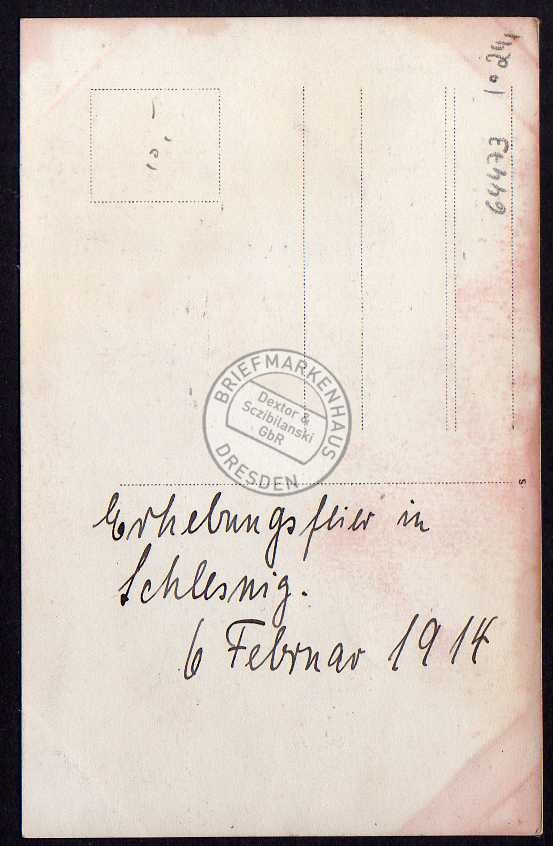 10,-
64473
BRIEFMARKENHAUS
Dextor &
Sczibilanski
GbR
DRESDEN
s
Erhebungsfeier in
Schleswig.
6 Februar 1914